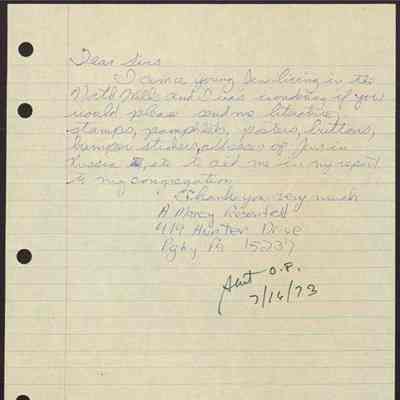 Dear Sirs
I am a young Jew living in the
North Hills and I was wondering if you
would please send me literature,
stamps, pamphlets, posters, buttons,
bumper stickers, addresses of Jews in
Russia, etc to aid me in my report
to my congregation
Thank you very much
A Marcy
419 Hunter Drive
Pgh, Pa 15237
Sent O.P.
7/16/73